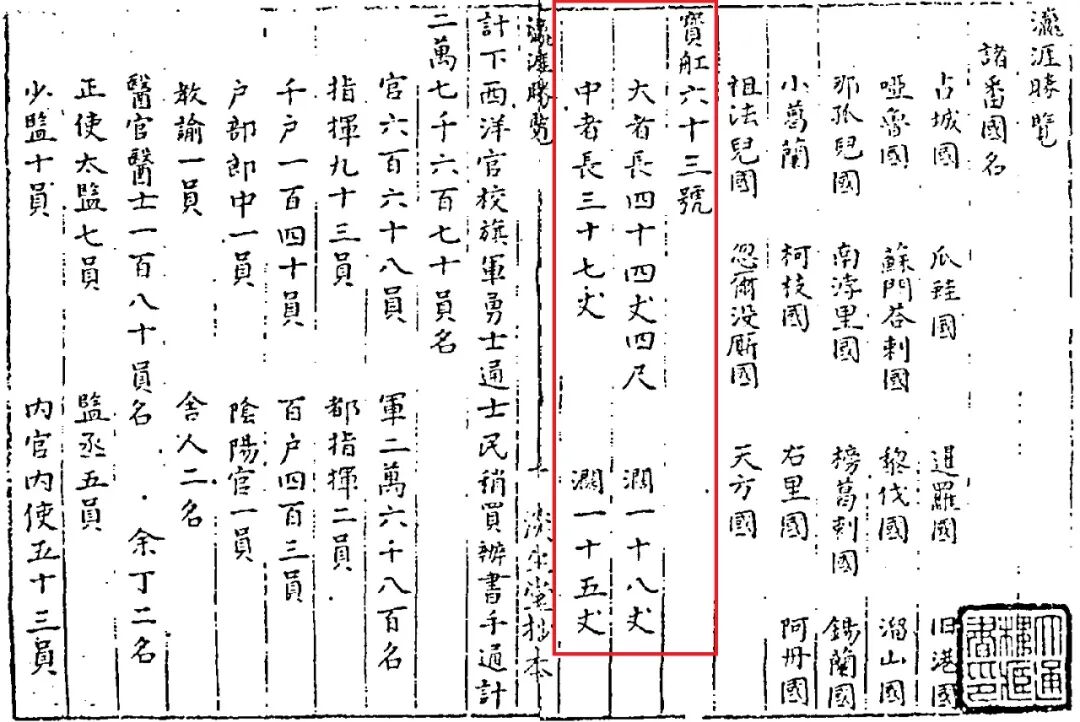 瀛涯勝覽
諸番國名
占城國 爪哇國 暹羅國 旧港國
啞魯國 蘇門荅剌國 黎伐國 溜山國
那孤兒國 南浡里國 榜葛剌國 錫蘭國
小葛蘭 柯枝國 古里國 阿丹國
祖法兒國 忽爾没厮國 天方國
寶舡六十三號
大者長四十四丈四尺 濶一十八丈
中者長三十七丈 濶一十五丈
瀛涯勝覽 淡生堂抄本
計下西洋官校旗軍勇士通士民稍買辦書手通計
二萬七千六百七十員名
官六百六十八員 軍二萬六千八百名
指揮九十三員 都指揮二員
千户一百四十員 百户四百三員
户部郎中一員 陰陽官一員
教諭一員 舍人二名
醫官醫士一百八十員名 余丁二名
正使太監七員 監丞五員
少監十員 内官内使五十三員